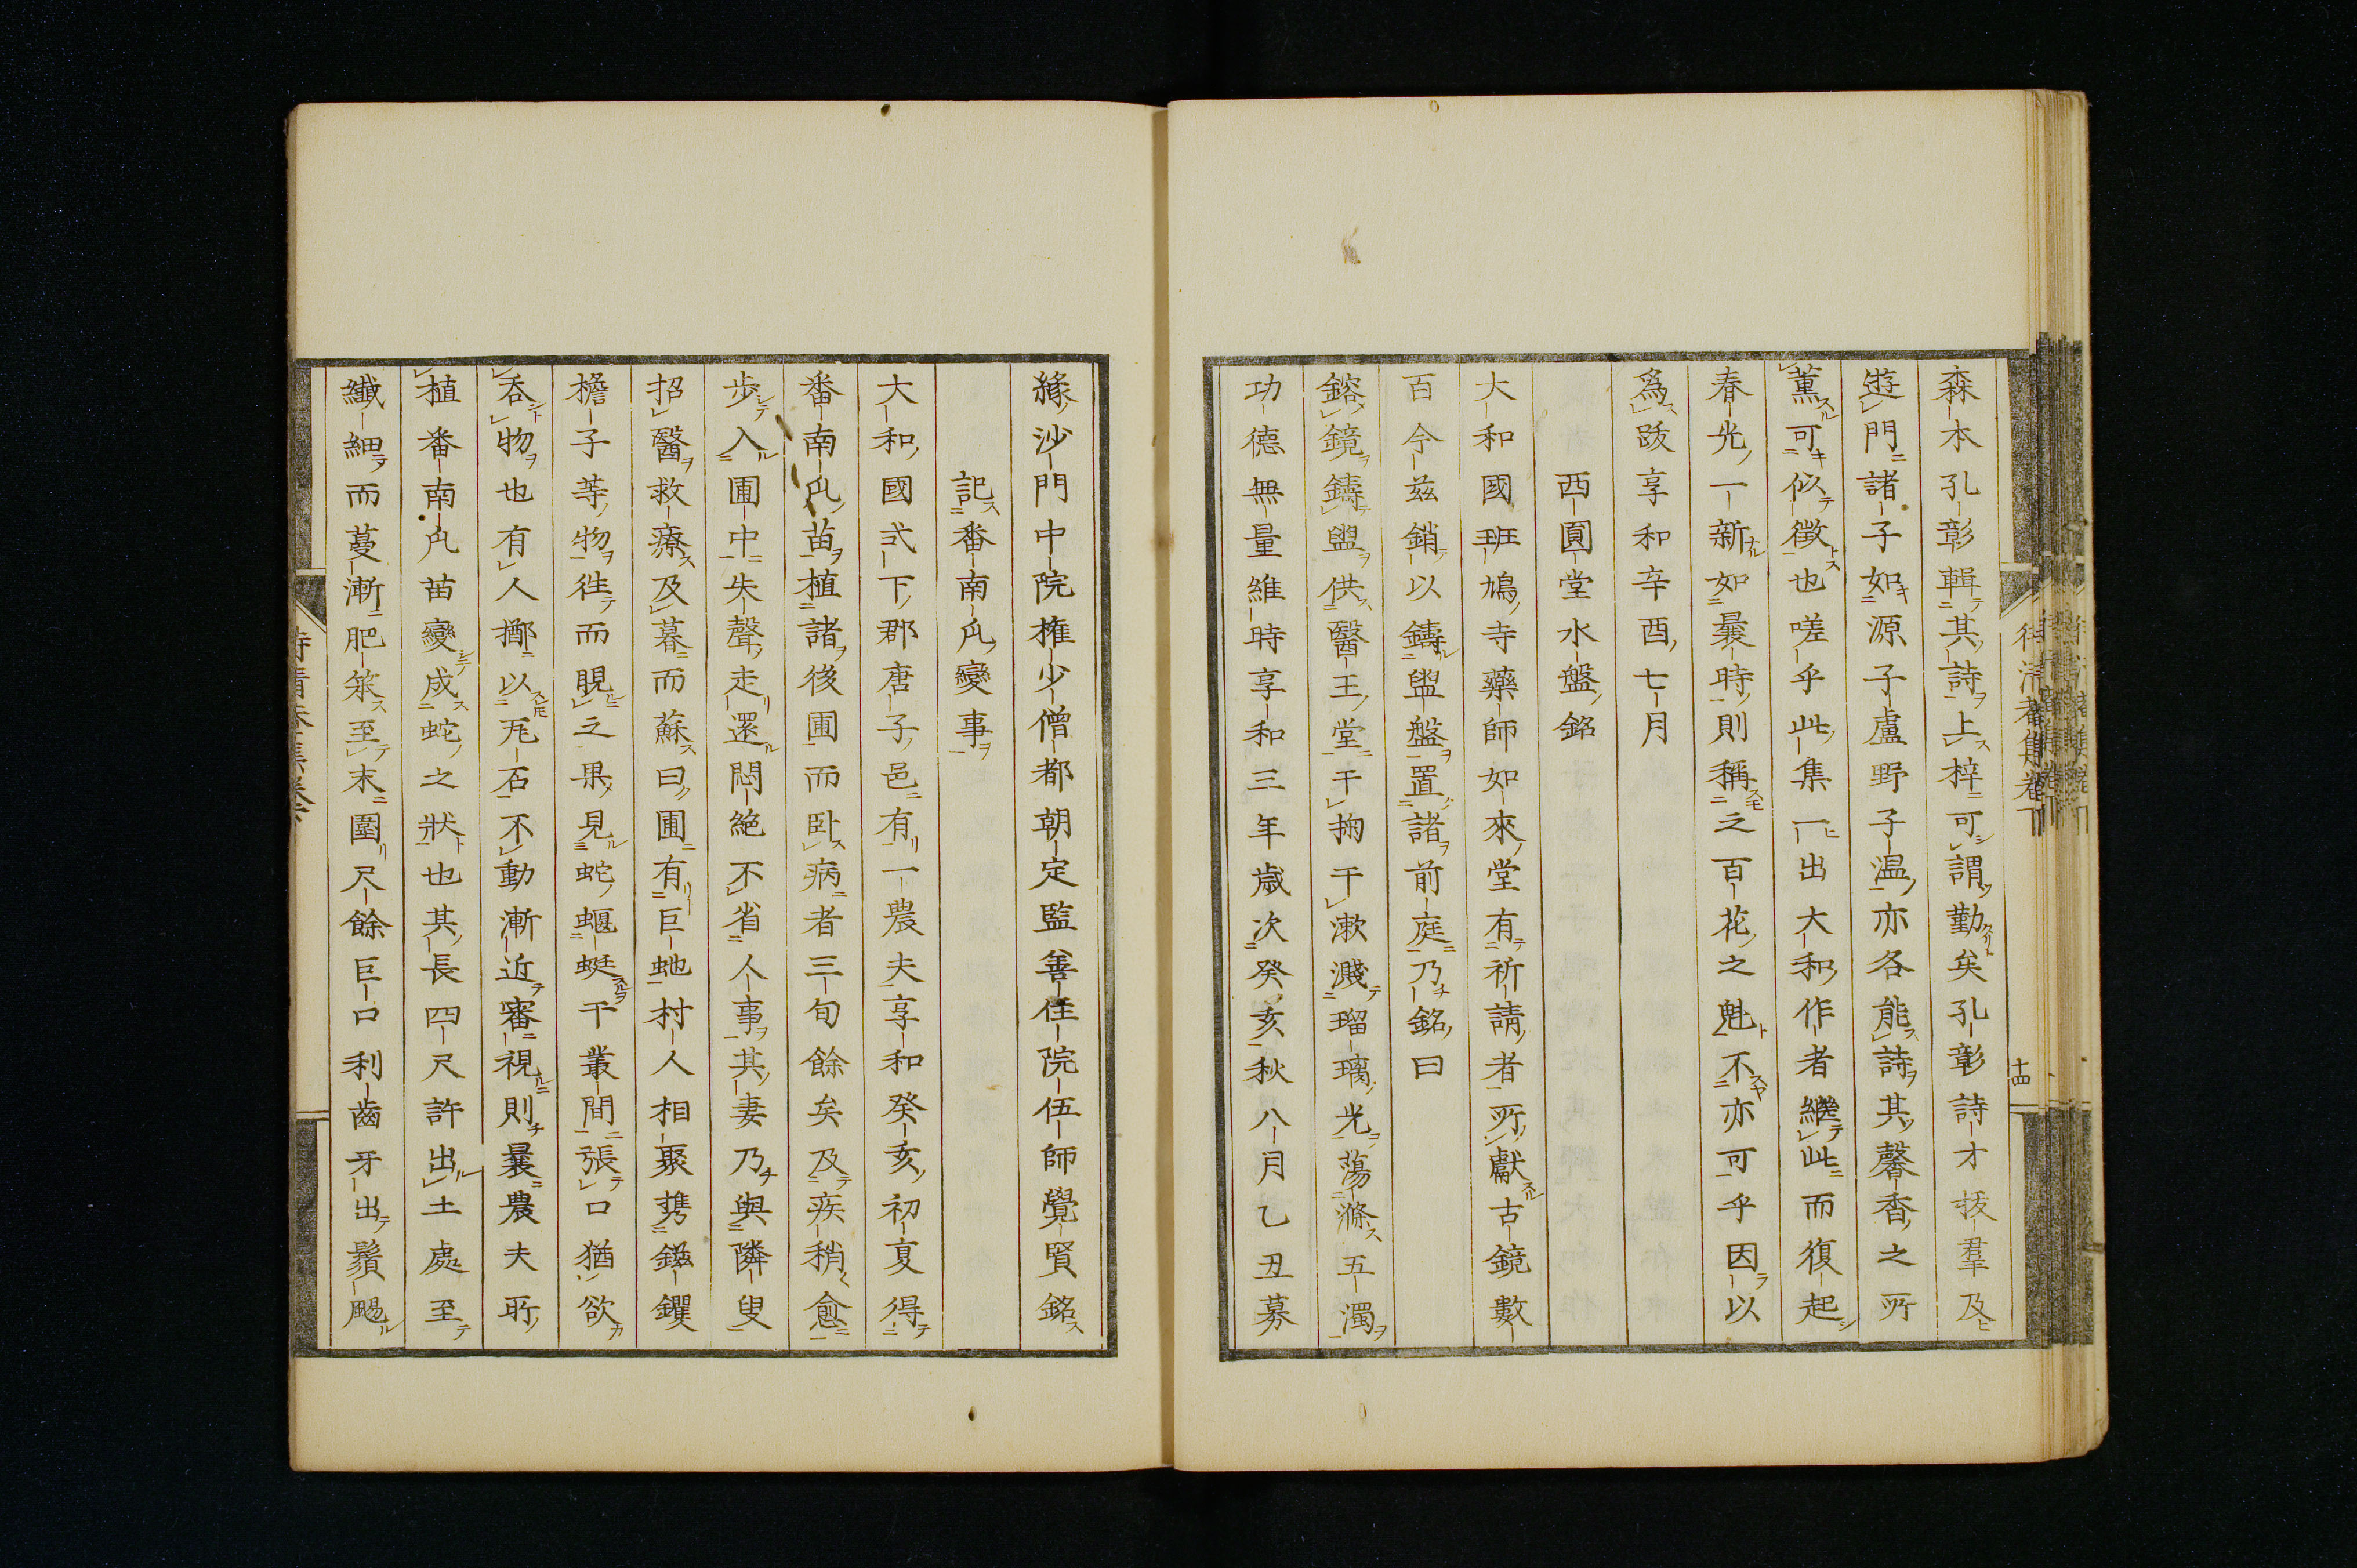 森本孔彰輯其詩上梓可謂勤矣孔彰詩才拔羣及
遊門諸子如源子盧野子温亦各能詩其馨香之所
薫可似徴也嗟乎此集一出大和作者繼此而復起
春光一新如曩時則稱之百花之魁不亦可乎因以
爲跋享和辛酉七月
西圓堂水盤銘
大和國班鳩寺藥師如來堂有祈請者所獻古鏡數
百今茲銷以鑄盥盤置諸前庭乃銘曰
鎔鏡鑄盥供醫王堂于掬于漱濺瑠璃光蕩滌五濁
功德無量維時享和三年歳次癸亥秋八月乙丑募
十四
緣沙門中院権少僧都朝定監善住院伍師覺賢銘
記番南凢變事
大和國式下郡唐子邑有一農夫享和癸亥初夏得
番南凢苗植諸後圃而臥病者三旬餘矣及疾稍愈
歩入圃中失聲走還悶絶不省人事其妻乃與隣叟
招醫救療及暮而蘇曰圃有巨虵村人相聚携鎡钁
檐子等物徃而覘之果見蛇蝘蜓干叢間張口猶欲
呑物也有人擲以瓦石不動漸近審視則曩農夫所
植番南凢苗變成蛇之狀也其長四尺許出土處至
纎細而蔓漸肥笨至末圍尺餘巨口利齒牙出鬚颺